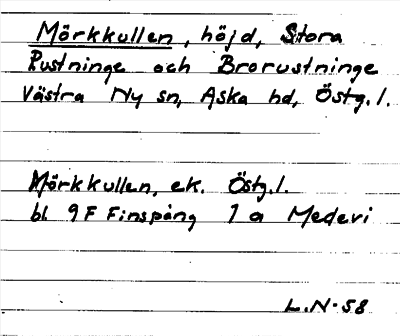 Mörkkullen, höjd, Stora
Rustninge och Brorustninge
Västra Ny sn, Aska hd, Östg.l.
Mörkkullen, ek. Östg.l.
bl 9F Finspång 1 a Medevi
L.N-58